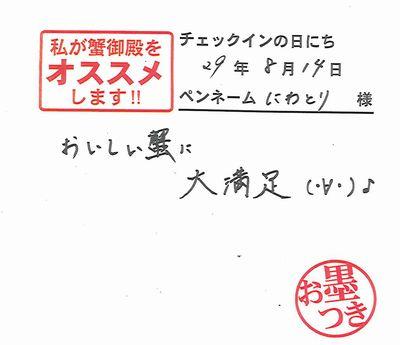 私が蟹御殿を
オススメ
します!!
チェックインの日にち
29年8月14日
ペンネーム にわとり 様
おいしい蟹に
大満足 (・∀・)♪
お墨つき